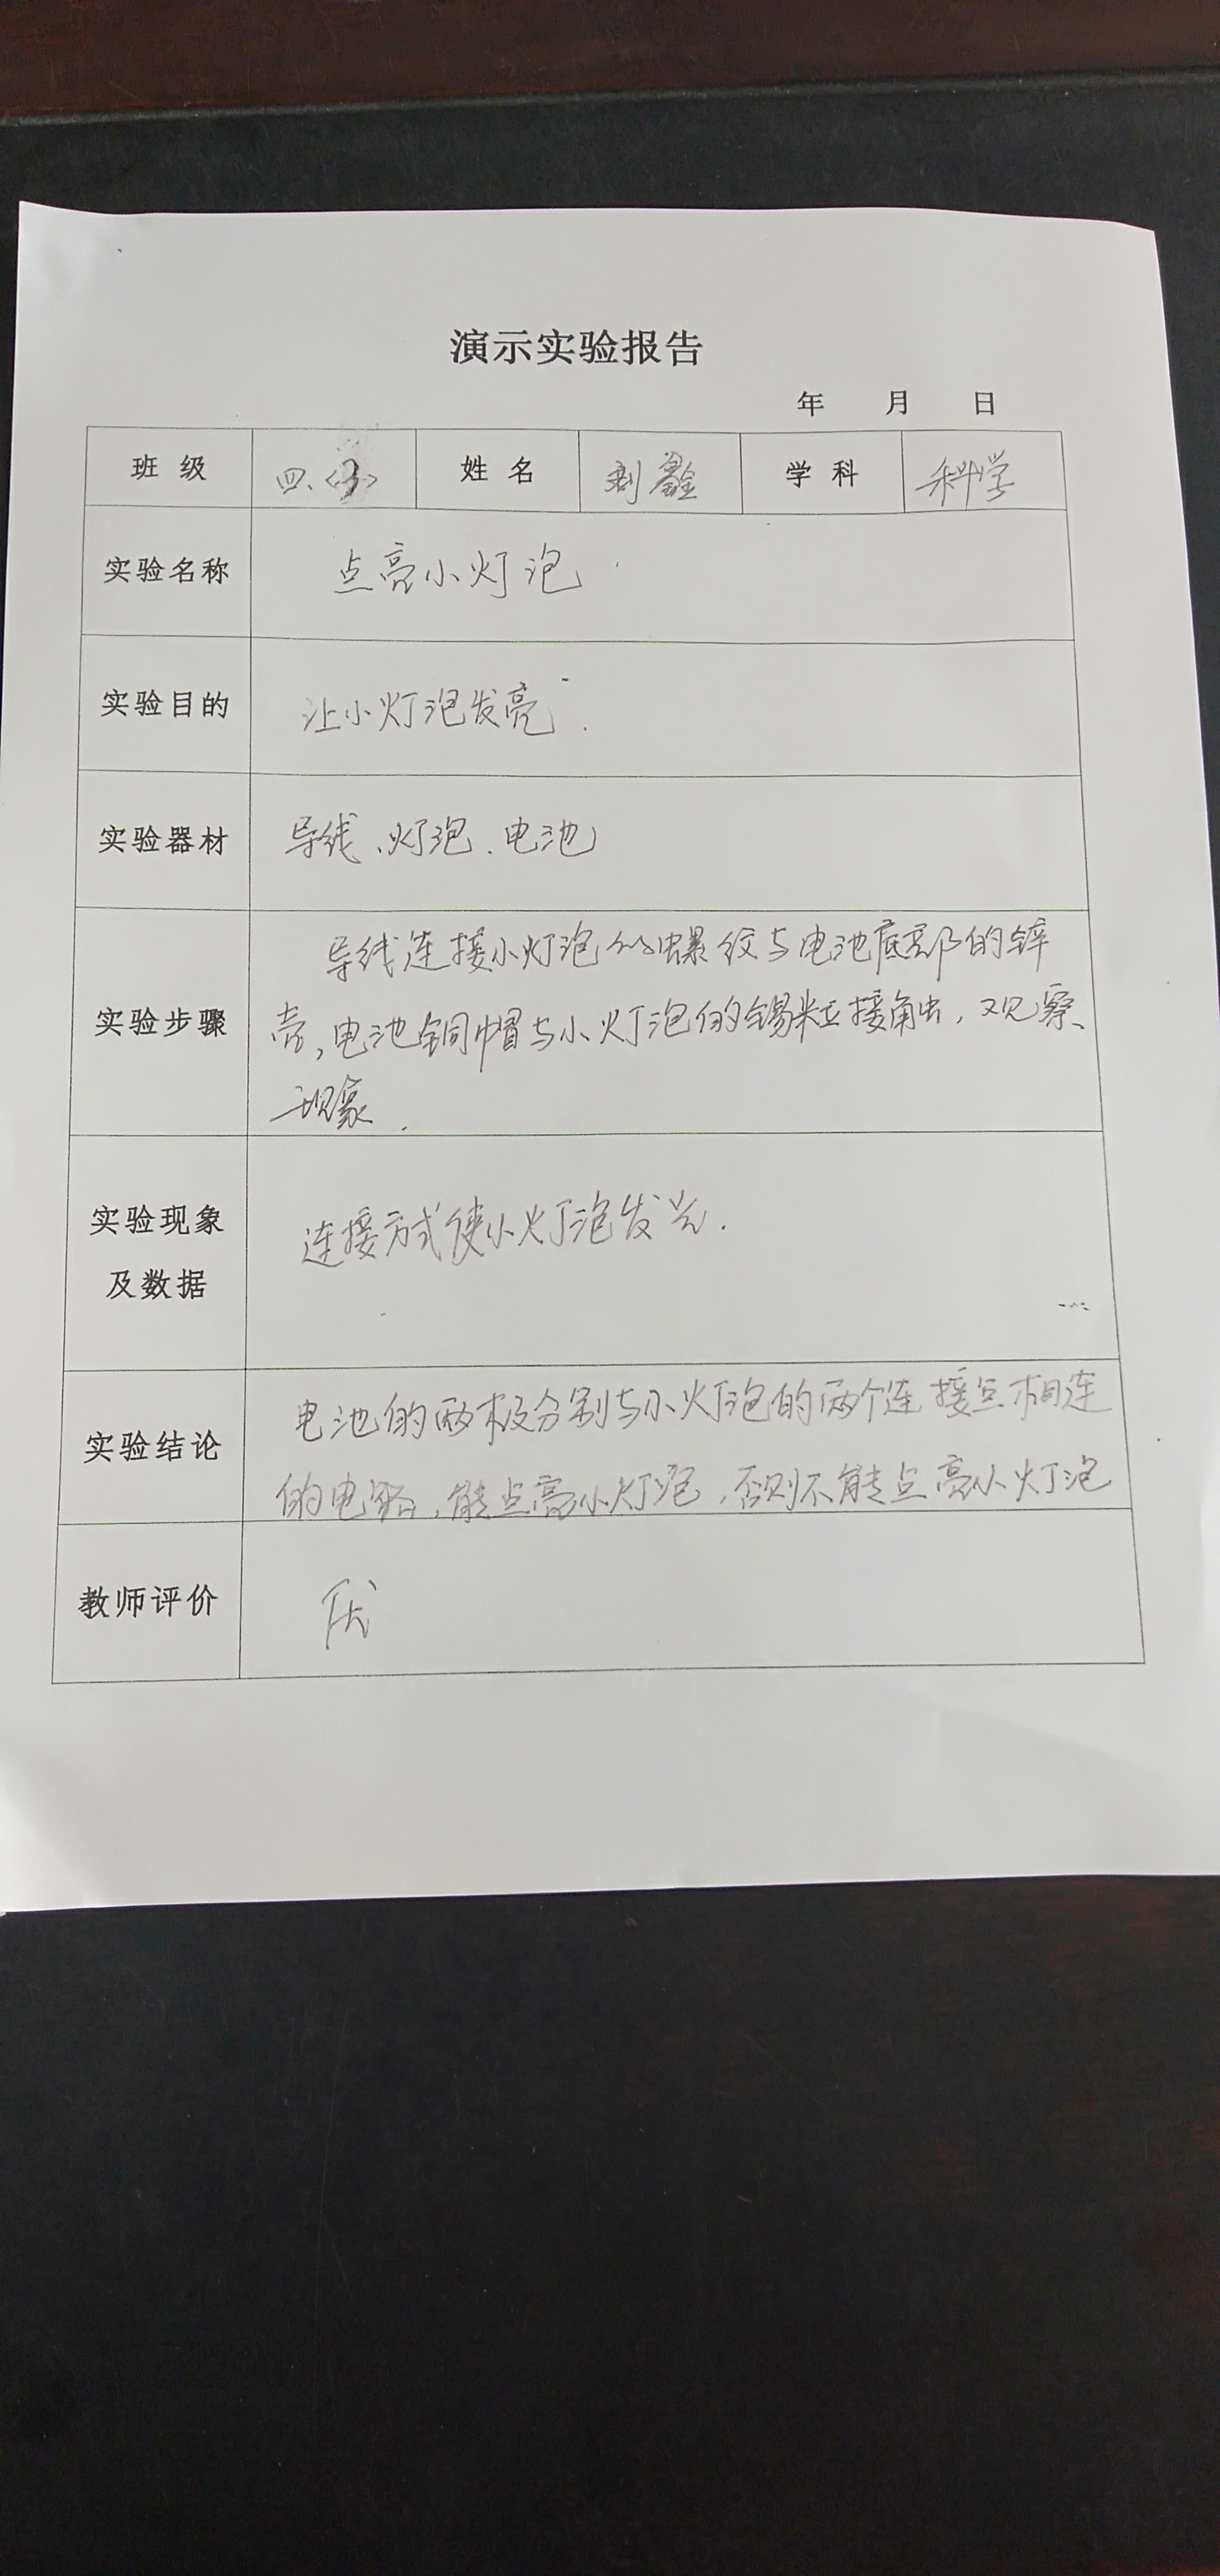 演示实验报告
年 月 日
班级 四.<3> 姓名 刘鑫 学科 科学
实验名称 点亮小灯泡
实验目的 让小灯泡发亮.
实验器材 导线、灯泡、电池
导线连接小灯泡的螺纹与电池底部的锌
实验步骤 壳,电池铜帽与小灯泡的锡粒接触,观察
现象.
实验现象 连接方式使小灯泡发光.
及数据
电池的两极分别与小灯泡的两个连接点相连
实验结论
的电路,能点亮小灯泡,否则不能点亮小灯泡
教师评价